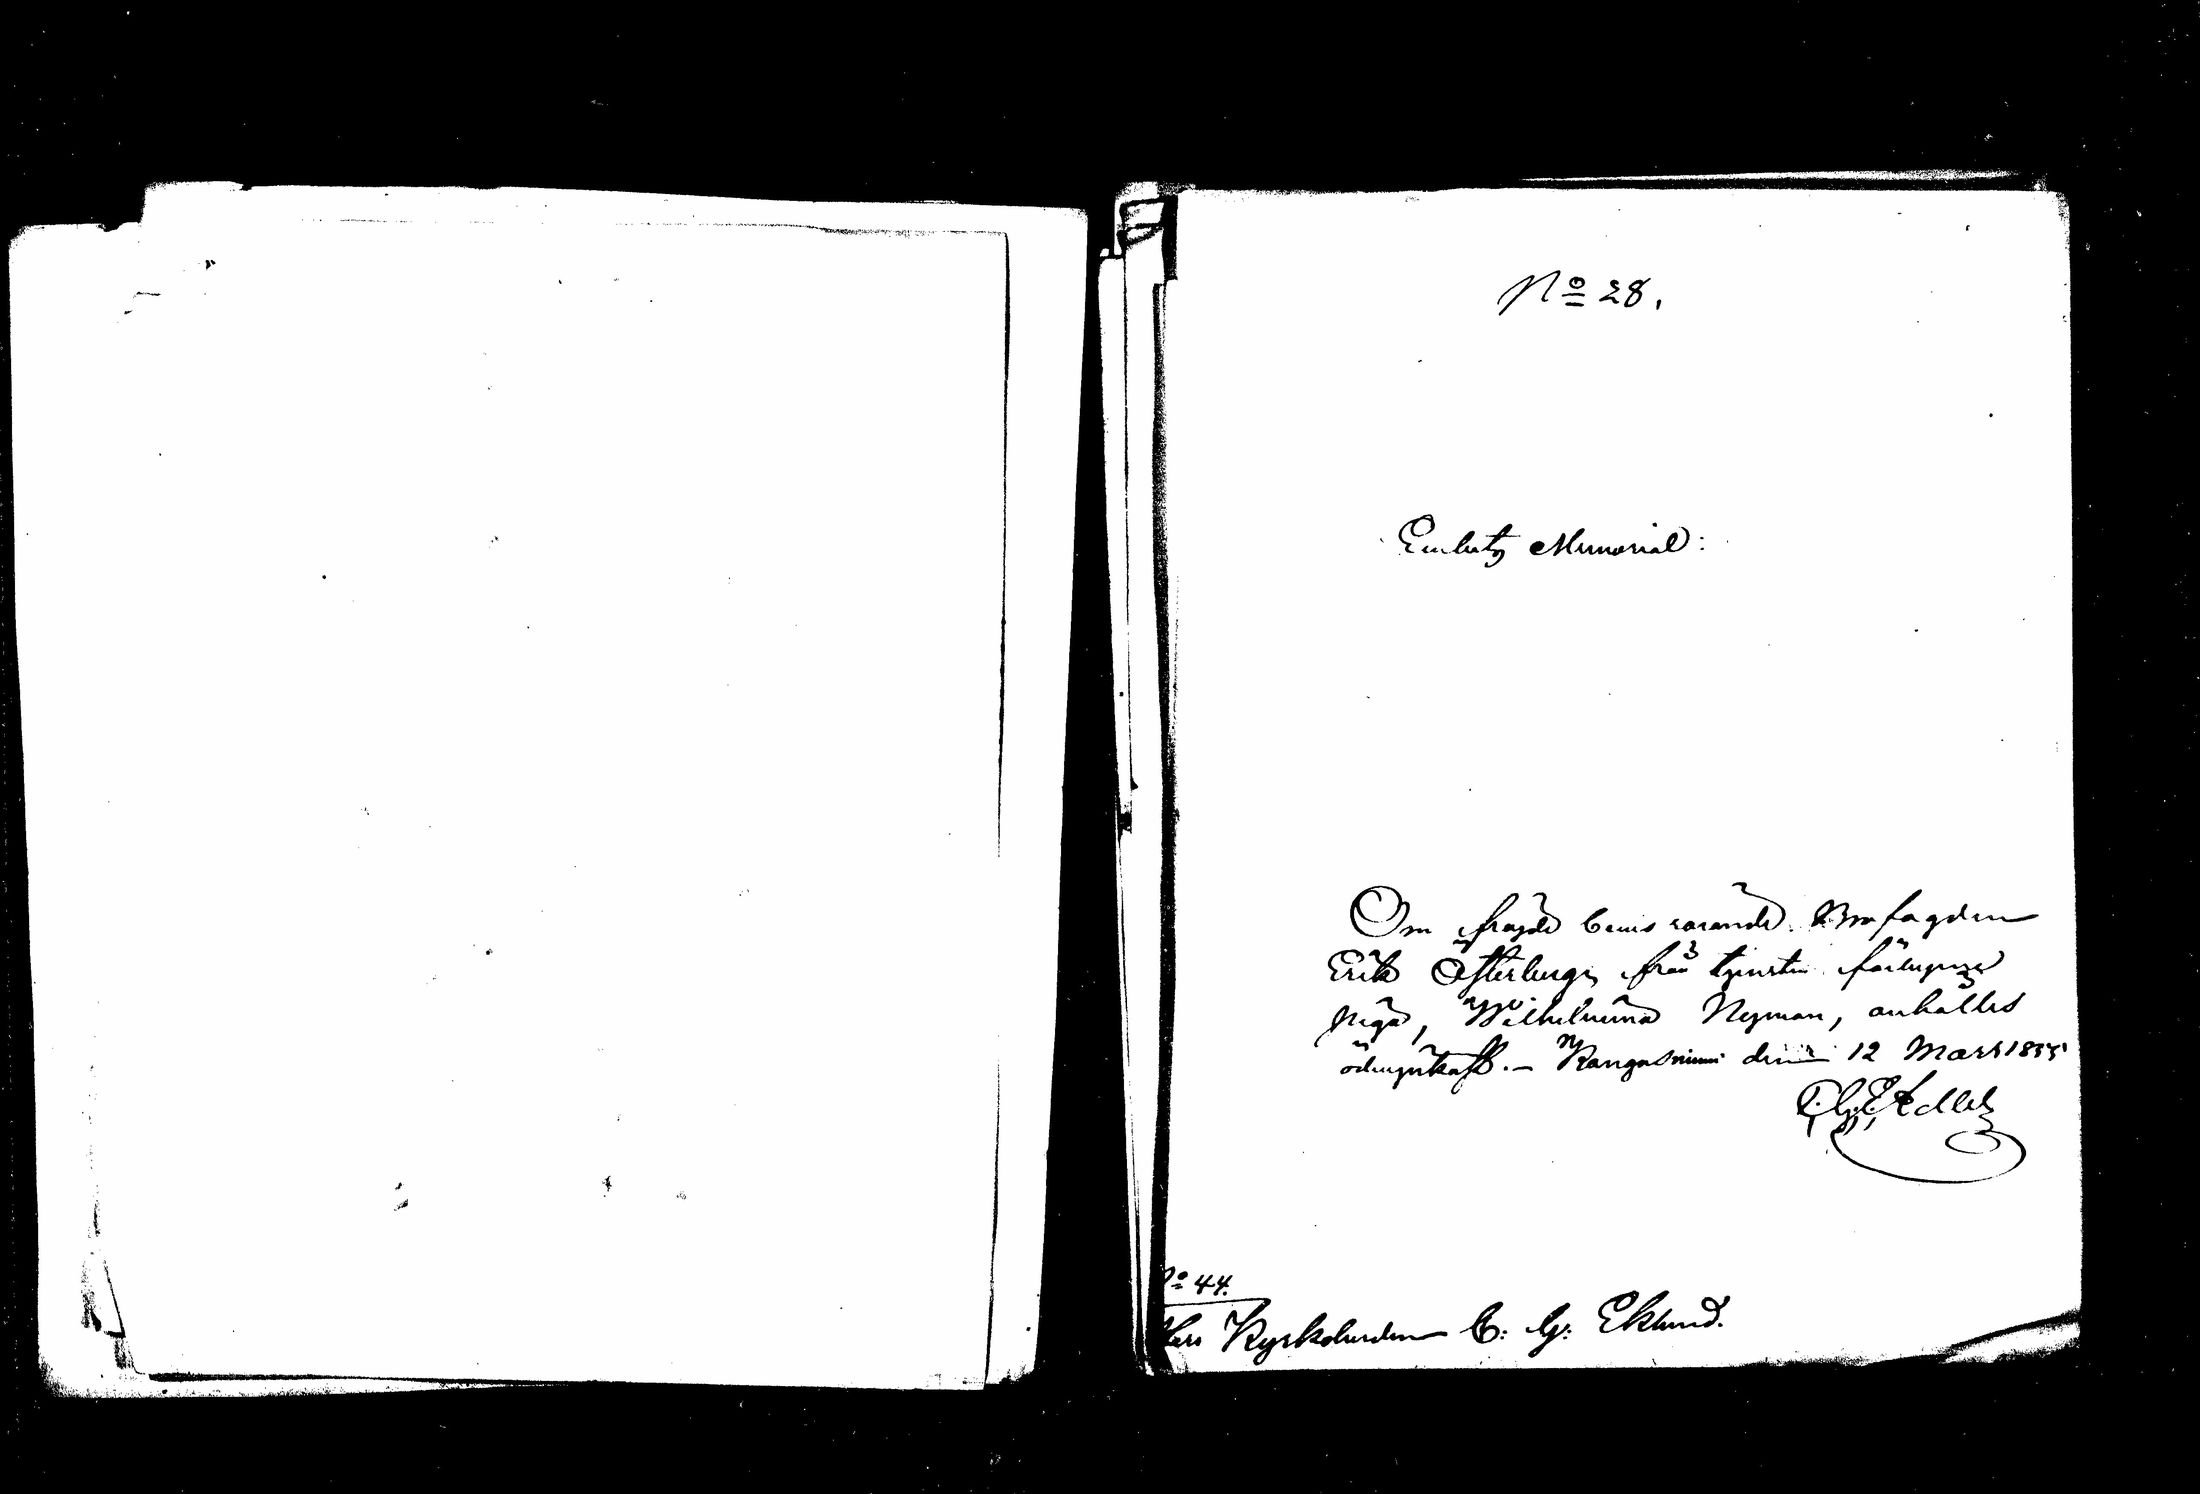 No 28.
Embets Memorial:
Om frejde bevis rörande Brofogden
Erik Österbergs från tjensten förlupne
piga, Wilhelmina Nyman, anhålles
ödmjukast. – Kangasniemi den 12 Mars 1855
No 44.
Herr Kyrkoherden C. G. Eklund.